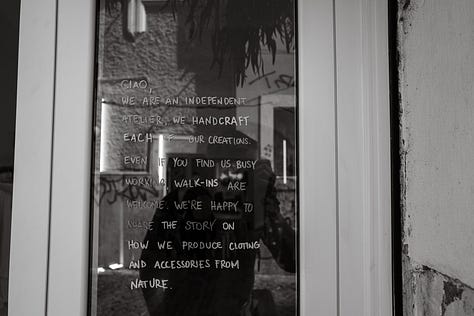 CIAO,
WE ARE AN INDEPENDENT
ATELIER, WE HANDCRAFT
EACH OF OUR CREATIONS.
EVEN IF YOU FIND US BUSY
WORKING, WALK-INS ARE
WELCOME. WE'RE HAPPY TO
SHARE THE STORY ON
HOW WE PRODUCE CLOTING
AND ACCESSORIES FROM
NATURE.